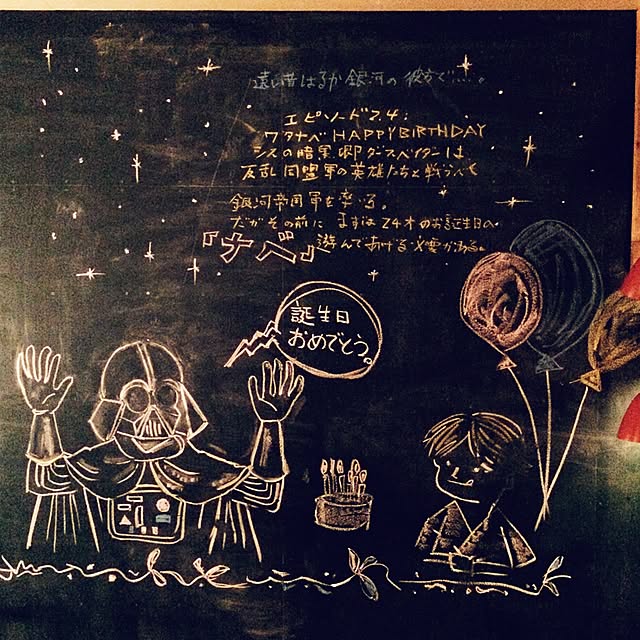 遠い昔はるか銀河の彼方で‥‥。
エピソード24.
ワタナベHAPPYBIRTHDAY
シスの暗黒卿ダースベイダーは
反乱同盟軍の英雄たちと戦うべく
銀河帝国軍を率いる。
だがその前に まずは24才のお誕生日の
『ナベ』遊んであげる必要がある。
誕生日
おめでとう。